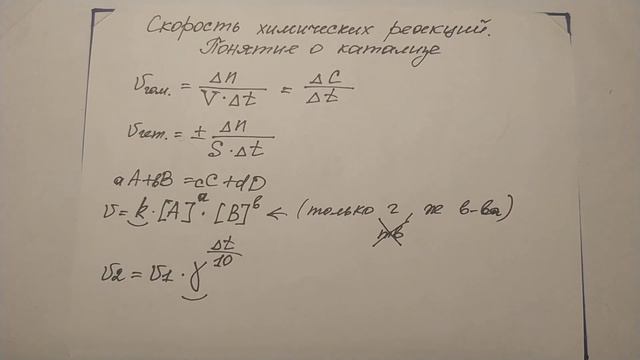 Скорость химических реакций.
Понятие о катализе
υгом. = Δn / V·Δt = ΔC / Δt
υгет. = ± Δn / S·Δt
aA+bB = cC+dD
υ = k·[A]^a·[B]^b ← (только г, ж в-ва)
тв
υ2 = υ1·γ^(Δt/10)